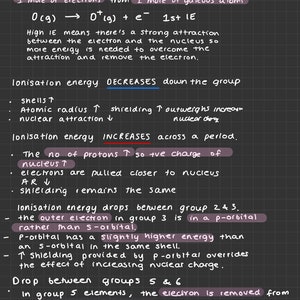 1 mole of electrons from 1 mole of gaseous atoms
O(g) → O⁺(g) + e⁻ 1st IE
High IE means there's a strong attraction
between the electron and the nucleus so
more energy is needed to overcome the
attraction and remove the electron.
Ionisation energy DECREASES down the group
· shells ↑
· Atomic radius ↑ shielding ↑ outweighs increase
· nuclear attraction ↓ nuclear
Ionisation energy INCREASES across a period.
· The no of protons ↑ so +ve charge of
nucleus ↑
· electrons are pulled closer to nucleus
AR ↓
· Shielding remains the same
Ionisation energy drops between group 2 & 3.
– the outer electron in group 3 is in a p-orbital
rather than s-orbital
– p-orbital has a slightly higher energy than
an s-orbital in the same shell.
– ↑ Shielding provided by p-orbital overrides
the effect of increasing nuclear charge.
Drop between groups 5 & 6
· In group 5 elements, the electron is removed from